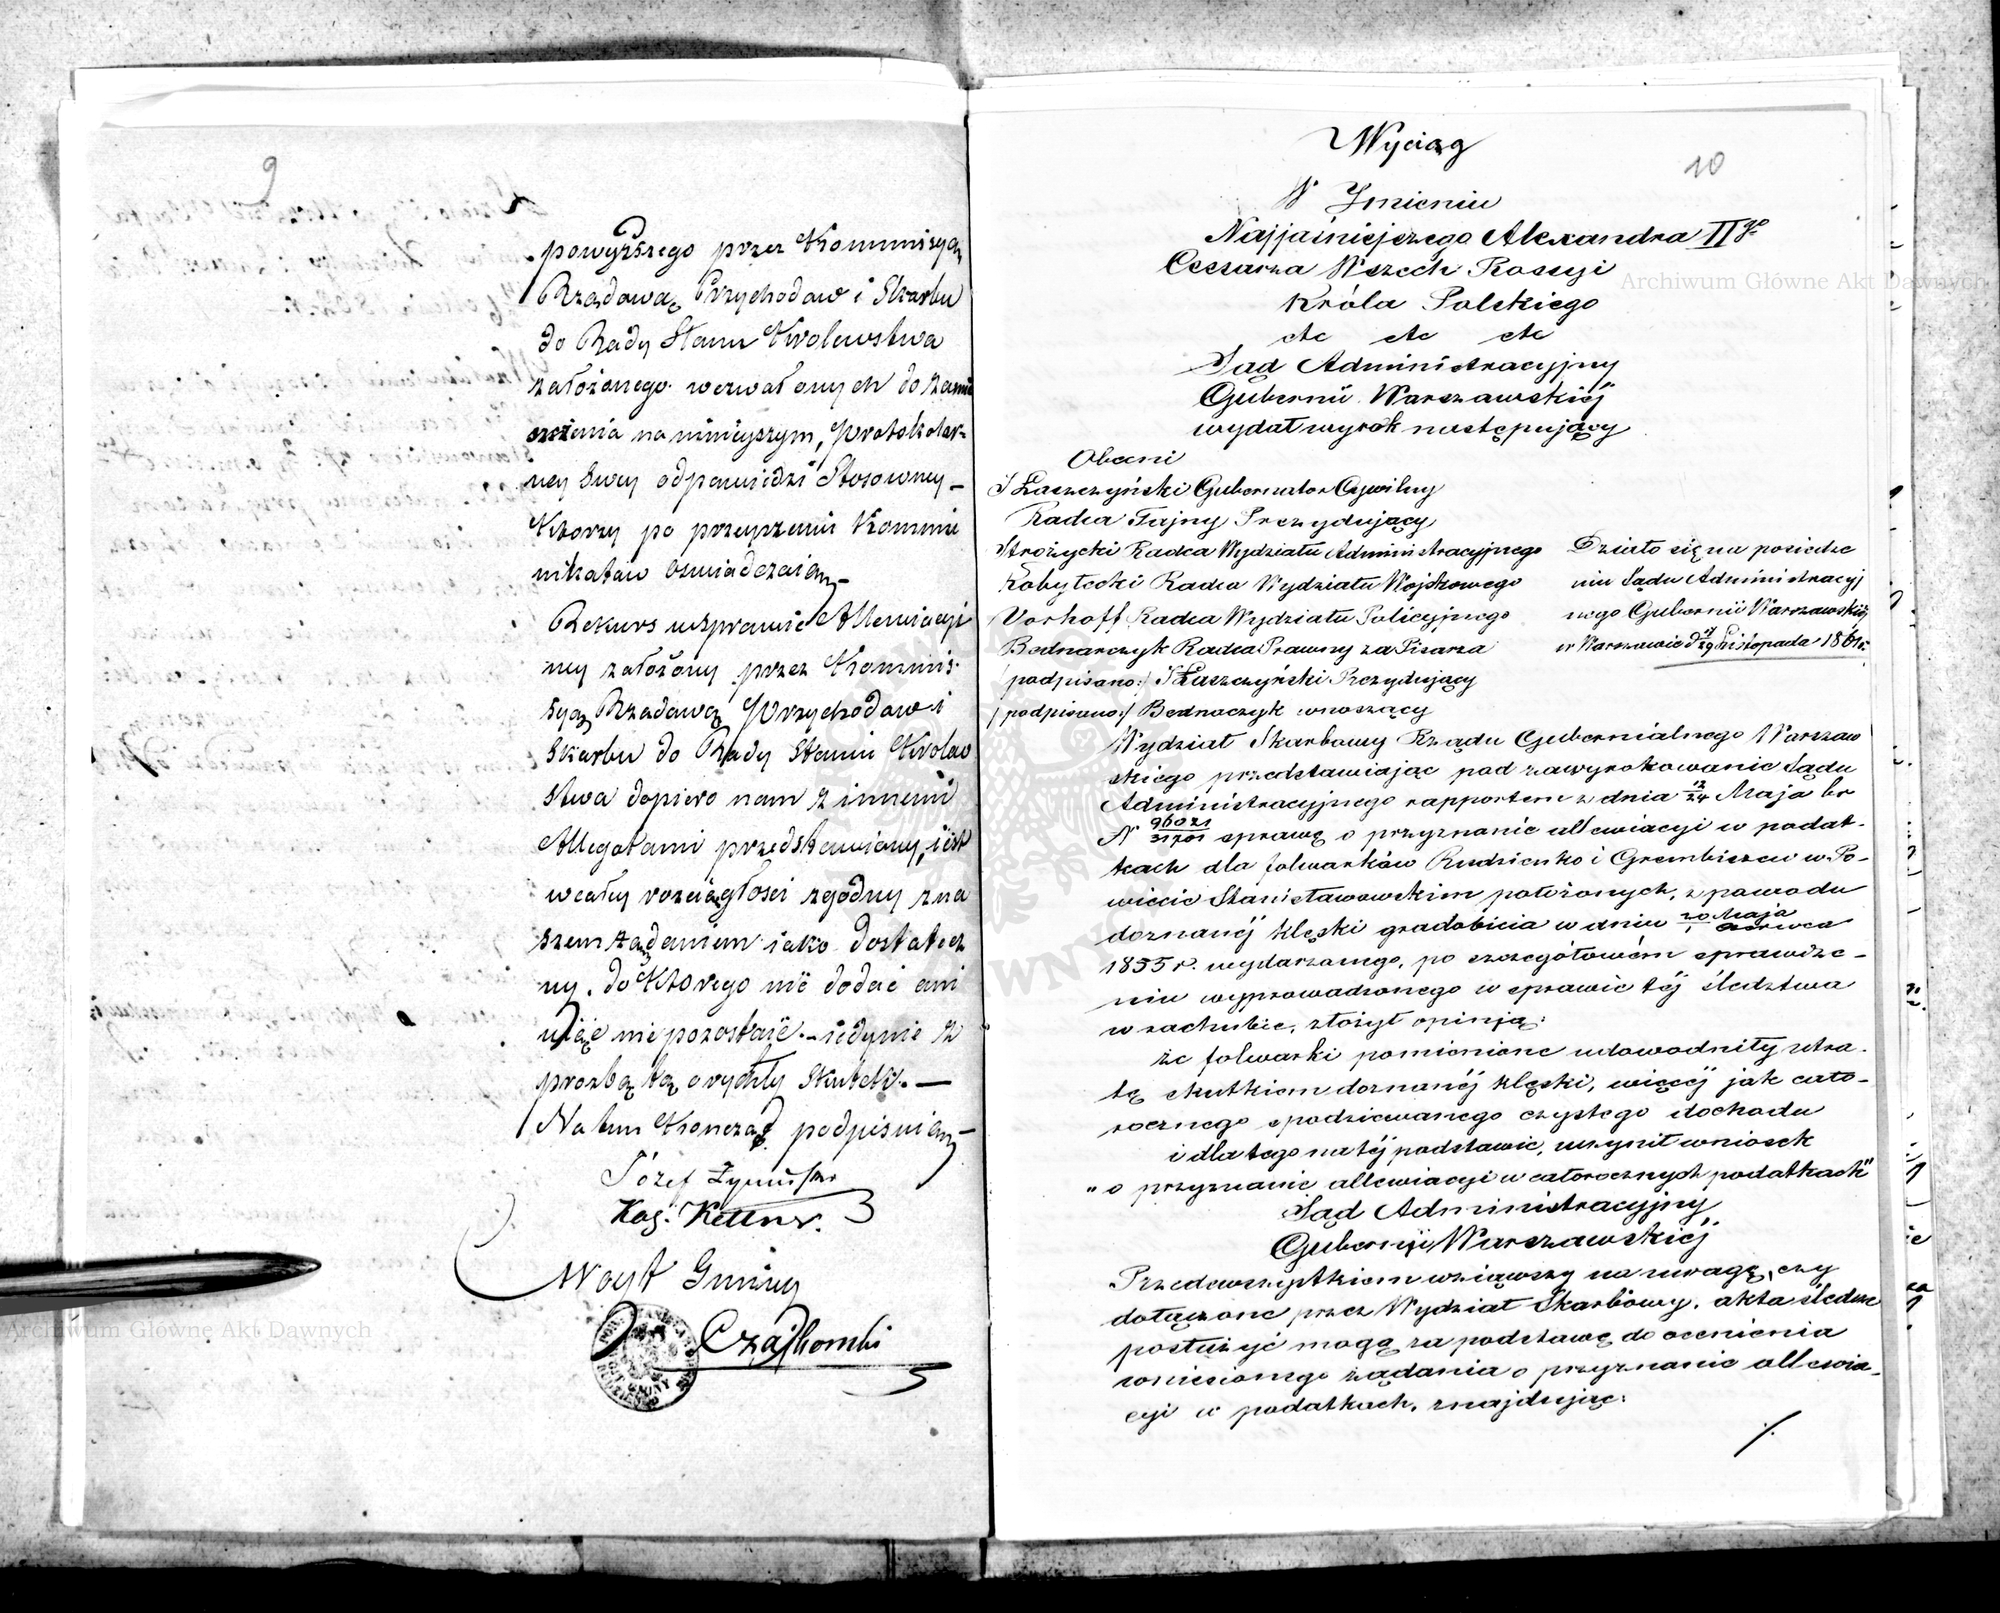 9
powyższego przez Kommissyą
Rządową Przychodow i Skarbu
do Rady Stanu Krolewstwa
założonego wezwałonych do zamie
szczenia na ninieyszym, Protokolar-
ney swey odpowiedzi Stosowney –
Ktorzy po przeyrzeniu Kommu
nikatow oswiadczaią –
Rekurs w sprawie Allewiacyi
ney założony przez Kommis-
syą Rządową Przychodow i
Skarbu do Rady Stanu Krolew
stwa dopiero nam z innemi
Allegatami przedstawiony, iest
w całey rozciągłosci zgodny z na
szem żądaniem iako dostatecz
ny, do Ktorego nic dodać ani
uiąc nie pozostaie – iedynie z
prozbą tą o rychły skutek. —
Na tem Konczą podpisuią –
Józef
Kaz. Kettner.
Woyt Gminy
Czaykowski
10
Wyciąg
W Jmieniu
Najjaśniejszego Alexandra IIgo
Cesarza Wszech Rossyi
Króla Polskiego
etc etc etc
Sąd Administracyjny
Gubernii Warszawskiéj
wydał wyrok następujący
Obecni
J Łaszczyński Gubernator Cywilny
Radca Tajny Prezydujący
Strożycki Radca Wydziału Administracyjnego
Kobyłecki Radca Wydziału Wojskowego
Vorhoff Radca Wydziału Policyjnego
Bednarczyk Radca Prawny za Pisarza
/podpisano:/ J Łaszczyński Prezydujący
/podpisano:/ Bednaczyk wnoszący
Działo się na posiedze
niu Sądu Administracyj
nego Gubernii Warszawskiéj
w Warszawie d. 17/29 Listopada 1861 r.
Wydział Skarbowy Rządu Gubernialnego Warszaw
skiego przedstawiając pod zawyrokowanie Sądu
Administracyjnego rapportem z dnia 12/24 Maja br
N 96021/31701 sprawę o przyznanie allewiacyi w podat-
kach dla folwarków Rudzienko i Grembiszew w Po-
wiecie Stanisławowskim położonych, z powodu
doznanéj klęski gradobicia w dniu 20 Maja/1 Czerwca
1855 r. wydarzonego, po szczegółowém sprawdze-
niu wyprowadzonego w sprawie téj śledztwa
w rachubie, złożył opinją:
że folwarki pomienione udowodniły utra-
tę skutkiem doznanéj klęski, więcéj jak cało-
rocznego spodziewanego czystego dochodu
i dla tego na téj podstawie, uczynił wniosek
" o przyznanie allewiacyi w całorocznych podatkach"
Sąd Administracyjny
Gubernii Warszawskiéj
Przedewszystkiem wziąwszy na uwagę, czy
dołączone przez Wydział Skarbowy, akta śledcze
posłużyć mogą za podstawę do ocenienia
wniesionego żądania o przyznanie allewia-
cyi w podatkach, znajdując:
./.
Archiwum Główne Akt Dawnych
Archiwum Główne Akt Dawnych